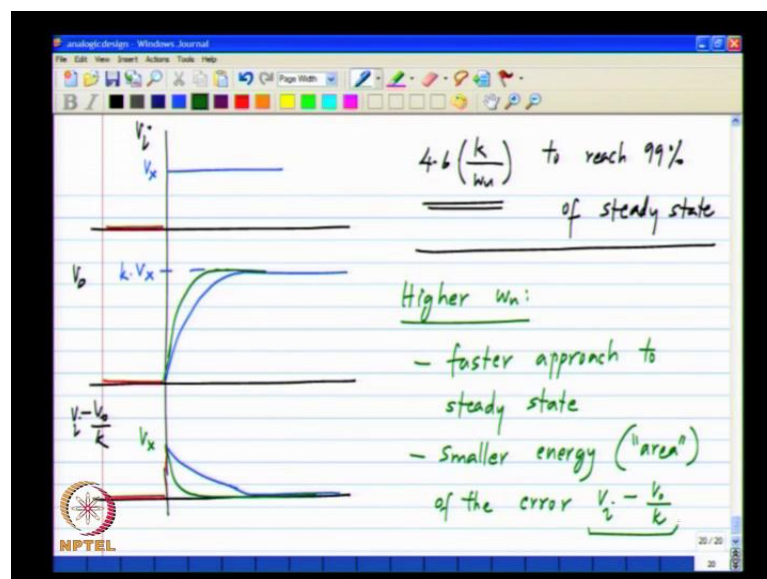 analogicdesign - Windows Journal
File Edit View Insert Actions Tools Help
Page Width
B I
Vi
Vx
V0
k.Vx
Vi - V0/k
Vx
4.6 (k/wu) to reach 99%
of steady state
Higher wu:
- faster approach to
steady state
- smaller energy ("area")
of the error Vi - V0/k
NPTEL
20 / 20
20